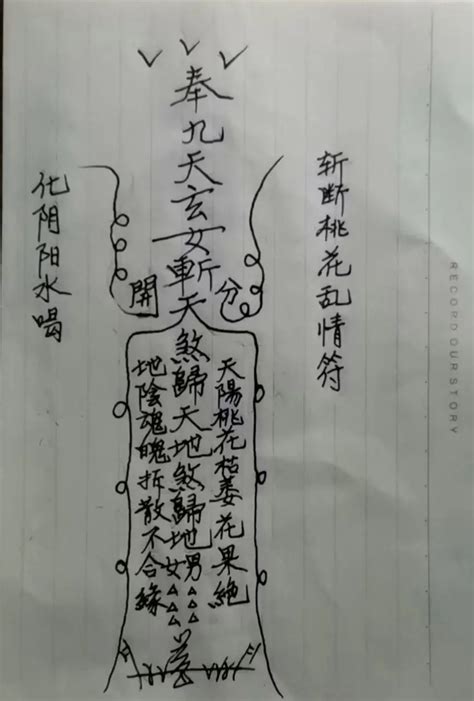 RECORD OUR STORY
斩断桃花乱情符
奉九天玄女斬天煞歸天地煞歸地
分
開
天陽桃花枯萎花果絶
男△△△
女△△△
地陰魂魄拆散不合緣
化阴阳水喝